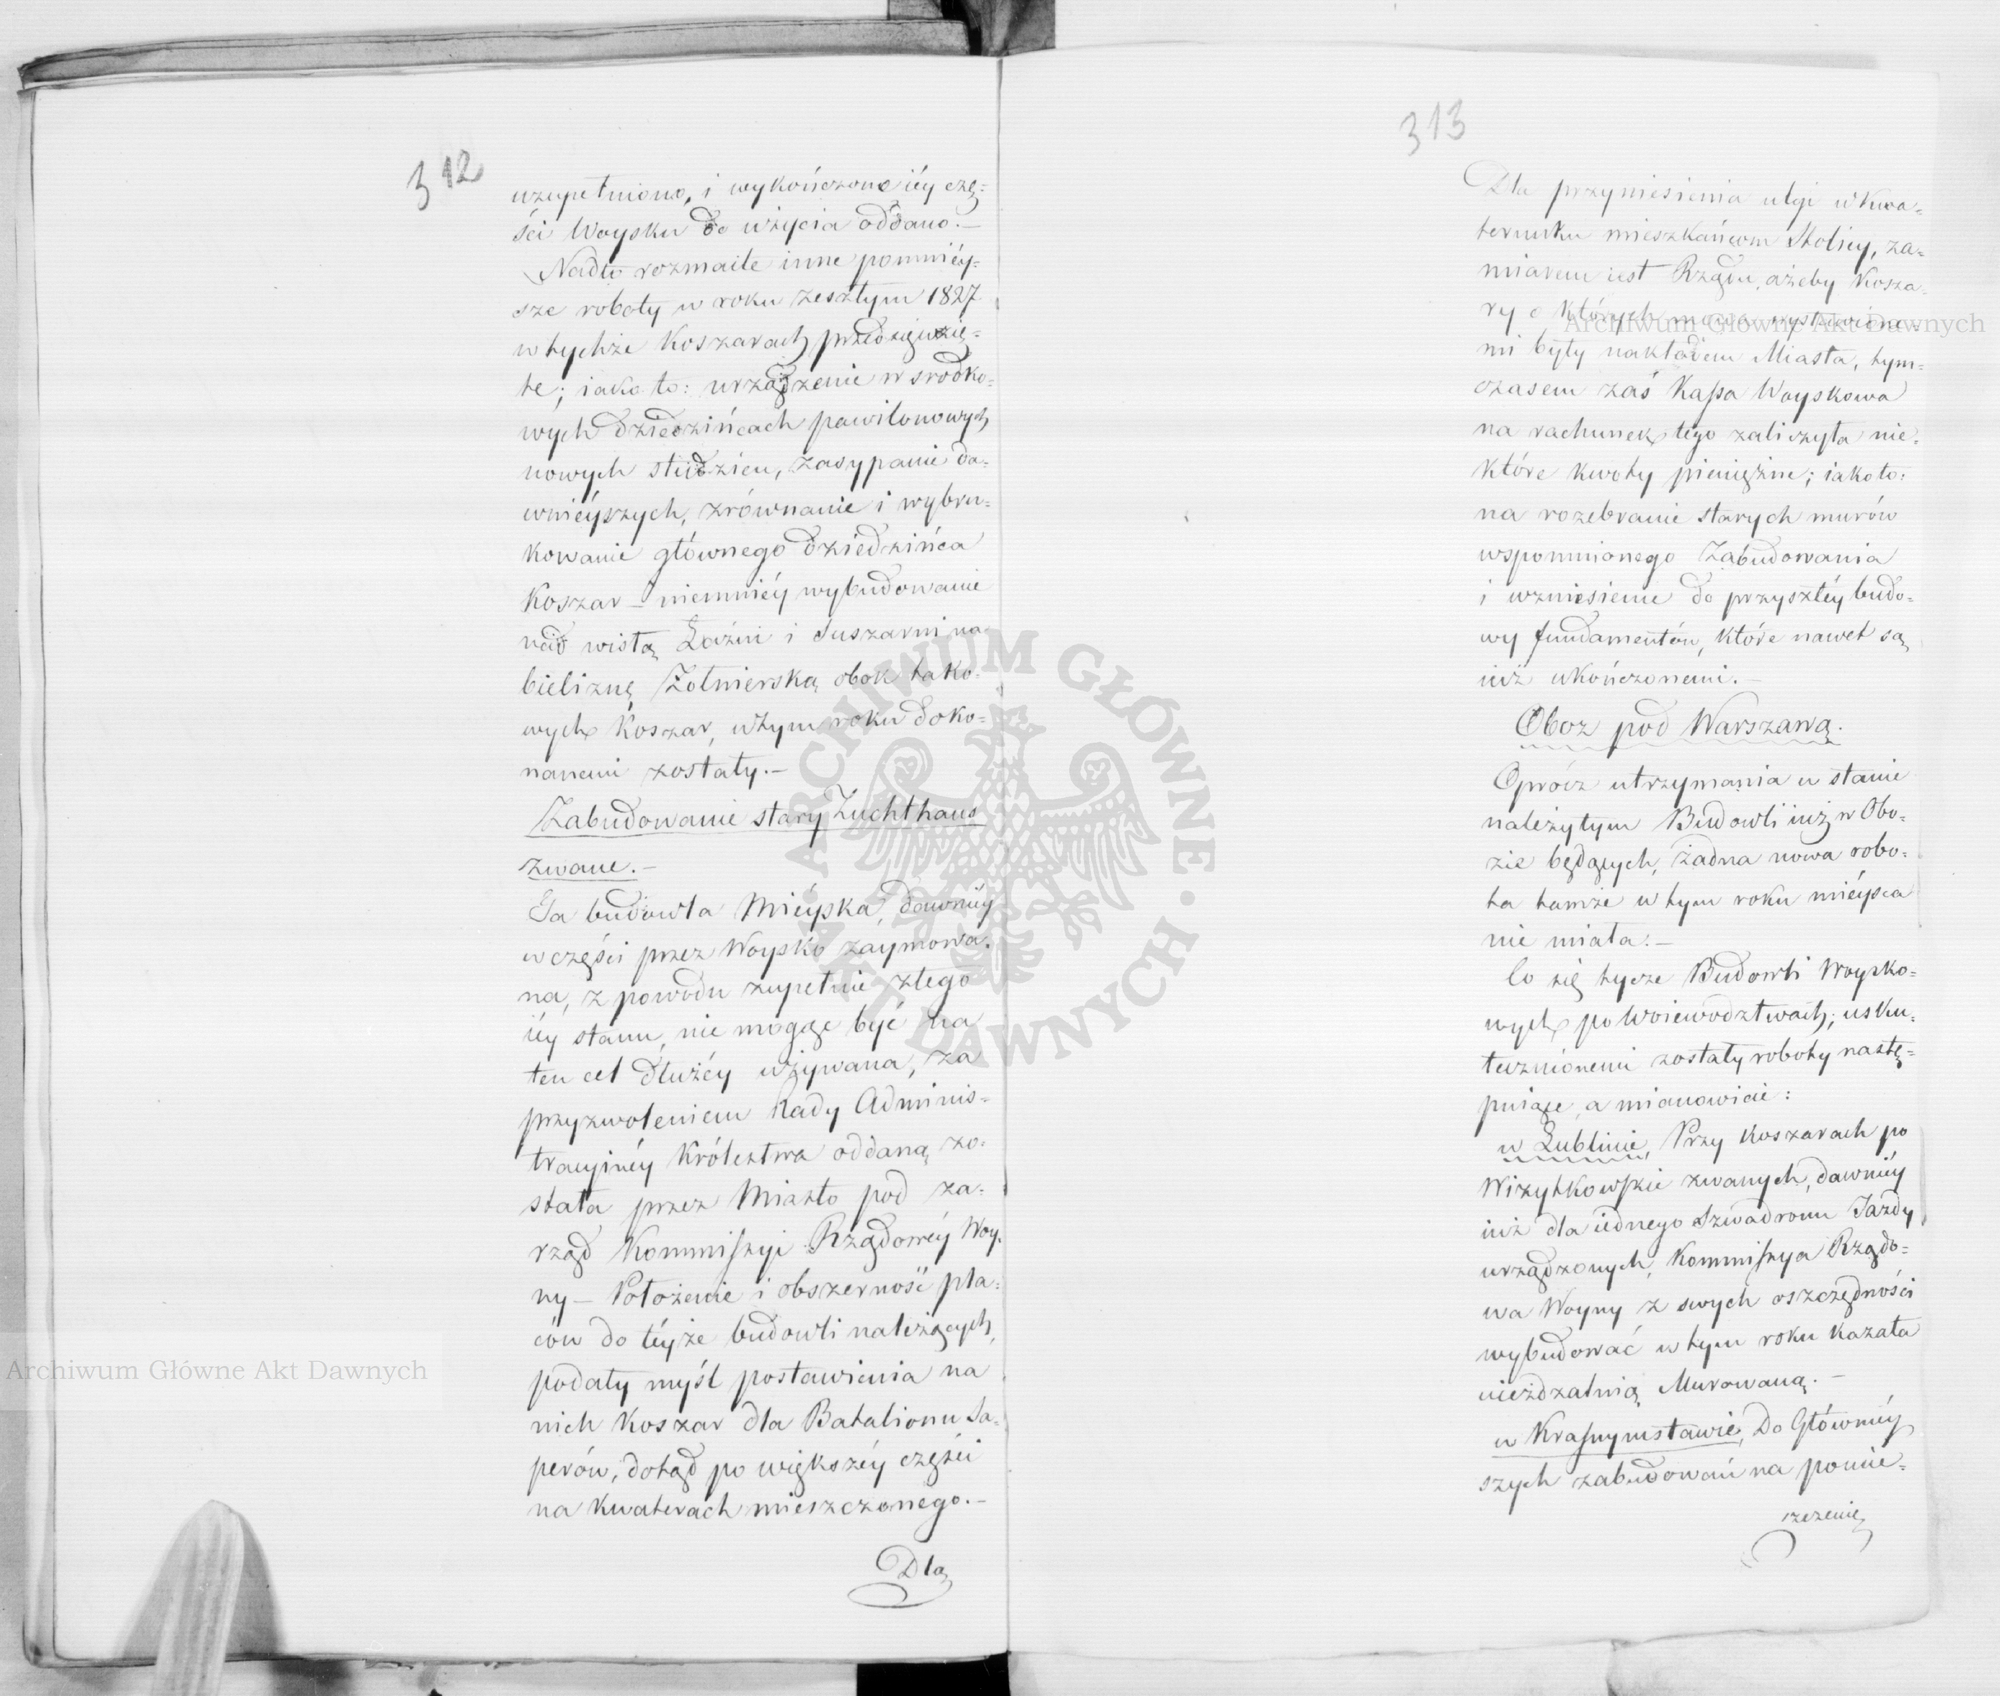 312
uzupełniono, i wykończone iéy czę=
ści Woysku do użycia oddano.—
Nadto rozmaite inne pomniéy=
sze roboty w roku zeszłym 1827
w tychże Koszarach przedsięwzię=
te; iako to: urządzenie w srodko=
wych dziedzińcach pawilonowych
nowych studzien, zasypanie da=
wniéyszych, zrównanie i wybru=
kowanie głównego dziedzińca
Koszar – niemniéy wybudowanie
nad wisłą Łaźni i Suszarni na
bieliznę Żołnierską obok tako=
wych Koszar, w tym roku doko=
nanemi zostały.—
Zabudowanie stary Zuchthaus
zwane.—
Ta budowla Mieyska, dawniéy
w części przez Woysko zaymowa=
na, z powodu zupełnie złego
iéy stanu, nie mogąc być na
ten cel dłużéy używana, za
przyzwoleniem Rady Adminis=
tracyinéy Królestwa oddaną zo=
stała przez Miasto pod za=
rząd Kommissyi Rządowéy Woy=
ny – Położenie i obszerność pla=
ców do téyże budowli należących,
podały myśl postawienia na
nich Koszar dla Batalionu Sa=
perów, dotąd po większéy części
na kwaterach mieszczonego.—
Dla
313
Dla przyniesienia ulgi w Kwa=
terunku mieszkańcom Stolicy, za=
miarem iest Rządu, ażeby Kosza=
ry o których mowa wystawione=
mi były nakładem Miasta, tym=
czasem zaś Kassa Woyskowa
na rachunek tego zaliczyła nie=
które kwoty pieniężne; iako to:
na rozebranie starych murów
wspomnionego Zabudowania
i wzniesienie do przyszłéy budo=
wy fundamentów, które nawet są
iuż ukończonemi.—
Oboz pod Warszawą.
Oprócz utrzymania w stanie
należytym Budowli iuż w Obo=
zie będących, żadna nowa robo=
ta tamże w tym roku mieysca
nie miała.—
Co się tycze Budowli Woysko=
wych po Woiewodztwach; usku=
tecznionemi zostały roboty nastę=
puiące, a mianowicie:
w Lublinie, Przy Koszarach po
Wizytkowskie zwanych, dawniéy
iuż dla iednego Szwadronu Jazdy
urządzonych, Kommissya Rządo=
wa Woyny z swych oszczędności
wybudować w tym roku kazała
uieżdżalnią Murowaną.—
w Krasnymstawie, Do Główniéy
szych zabudowań na pomie=
szczenie
Archiwum Główne Akt Dawnych
Archiwum Główne Akt Dawnych
ARCHIWUM GŁÓWNE AKT DAWNYCH